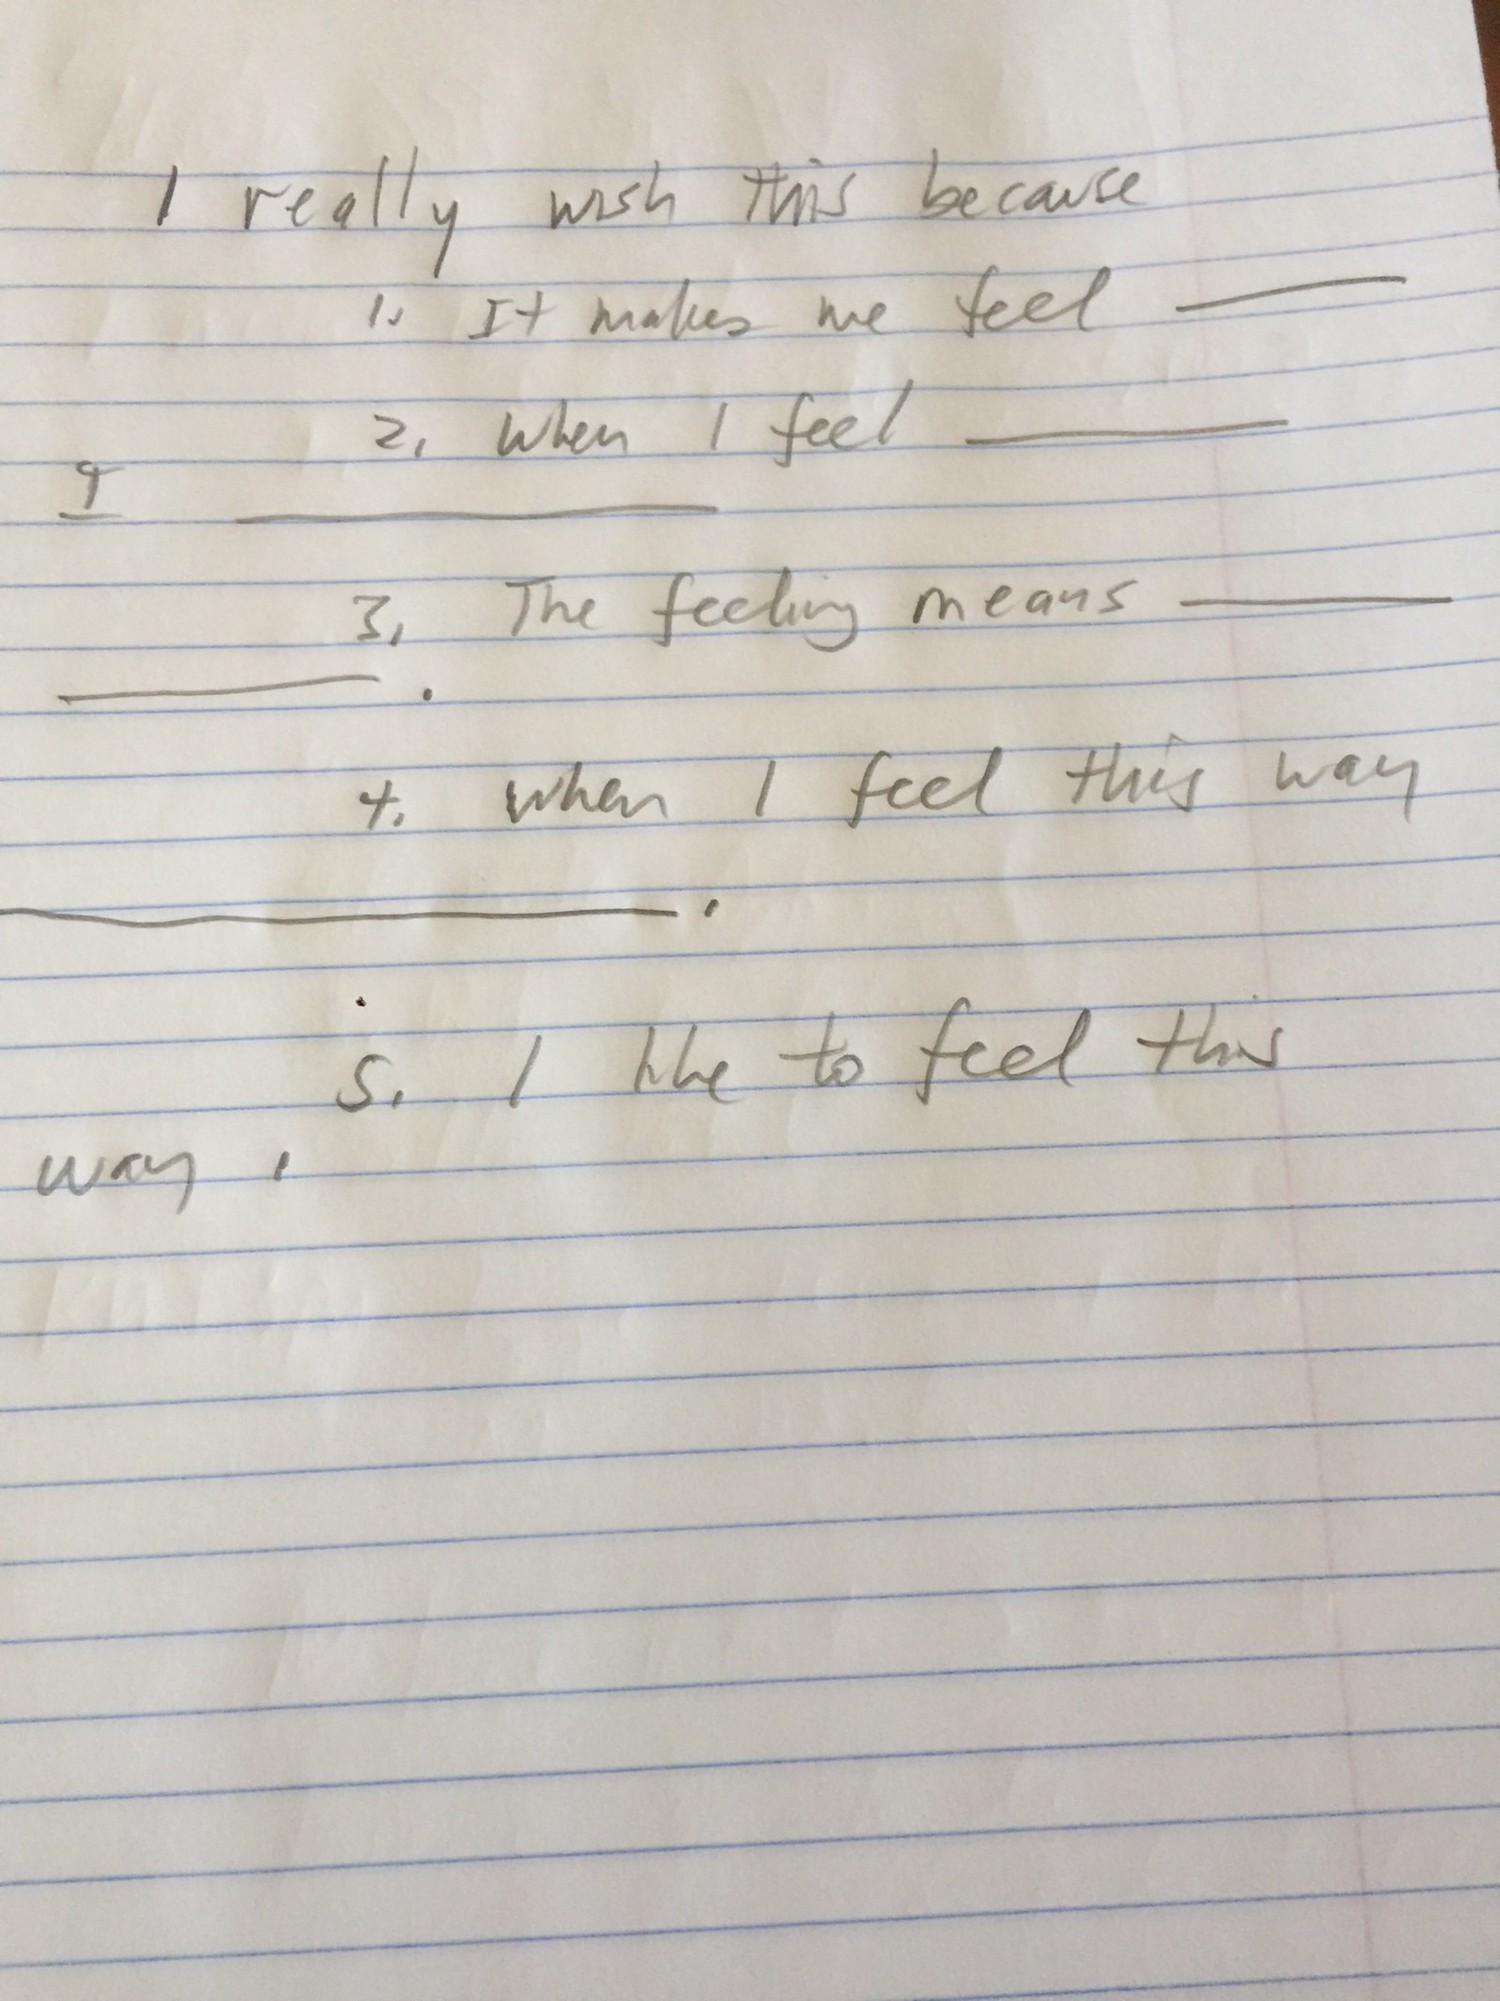 I really wish this because
1. It makes me feel ____
2. When I feel ____
____
3. The feeling means ____
____.
4. When I feel this way
____.
5. I like to feel this
way.